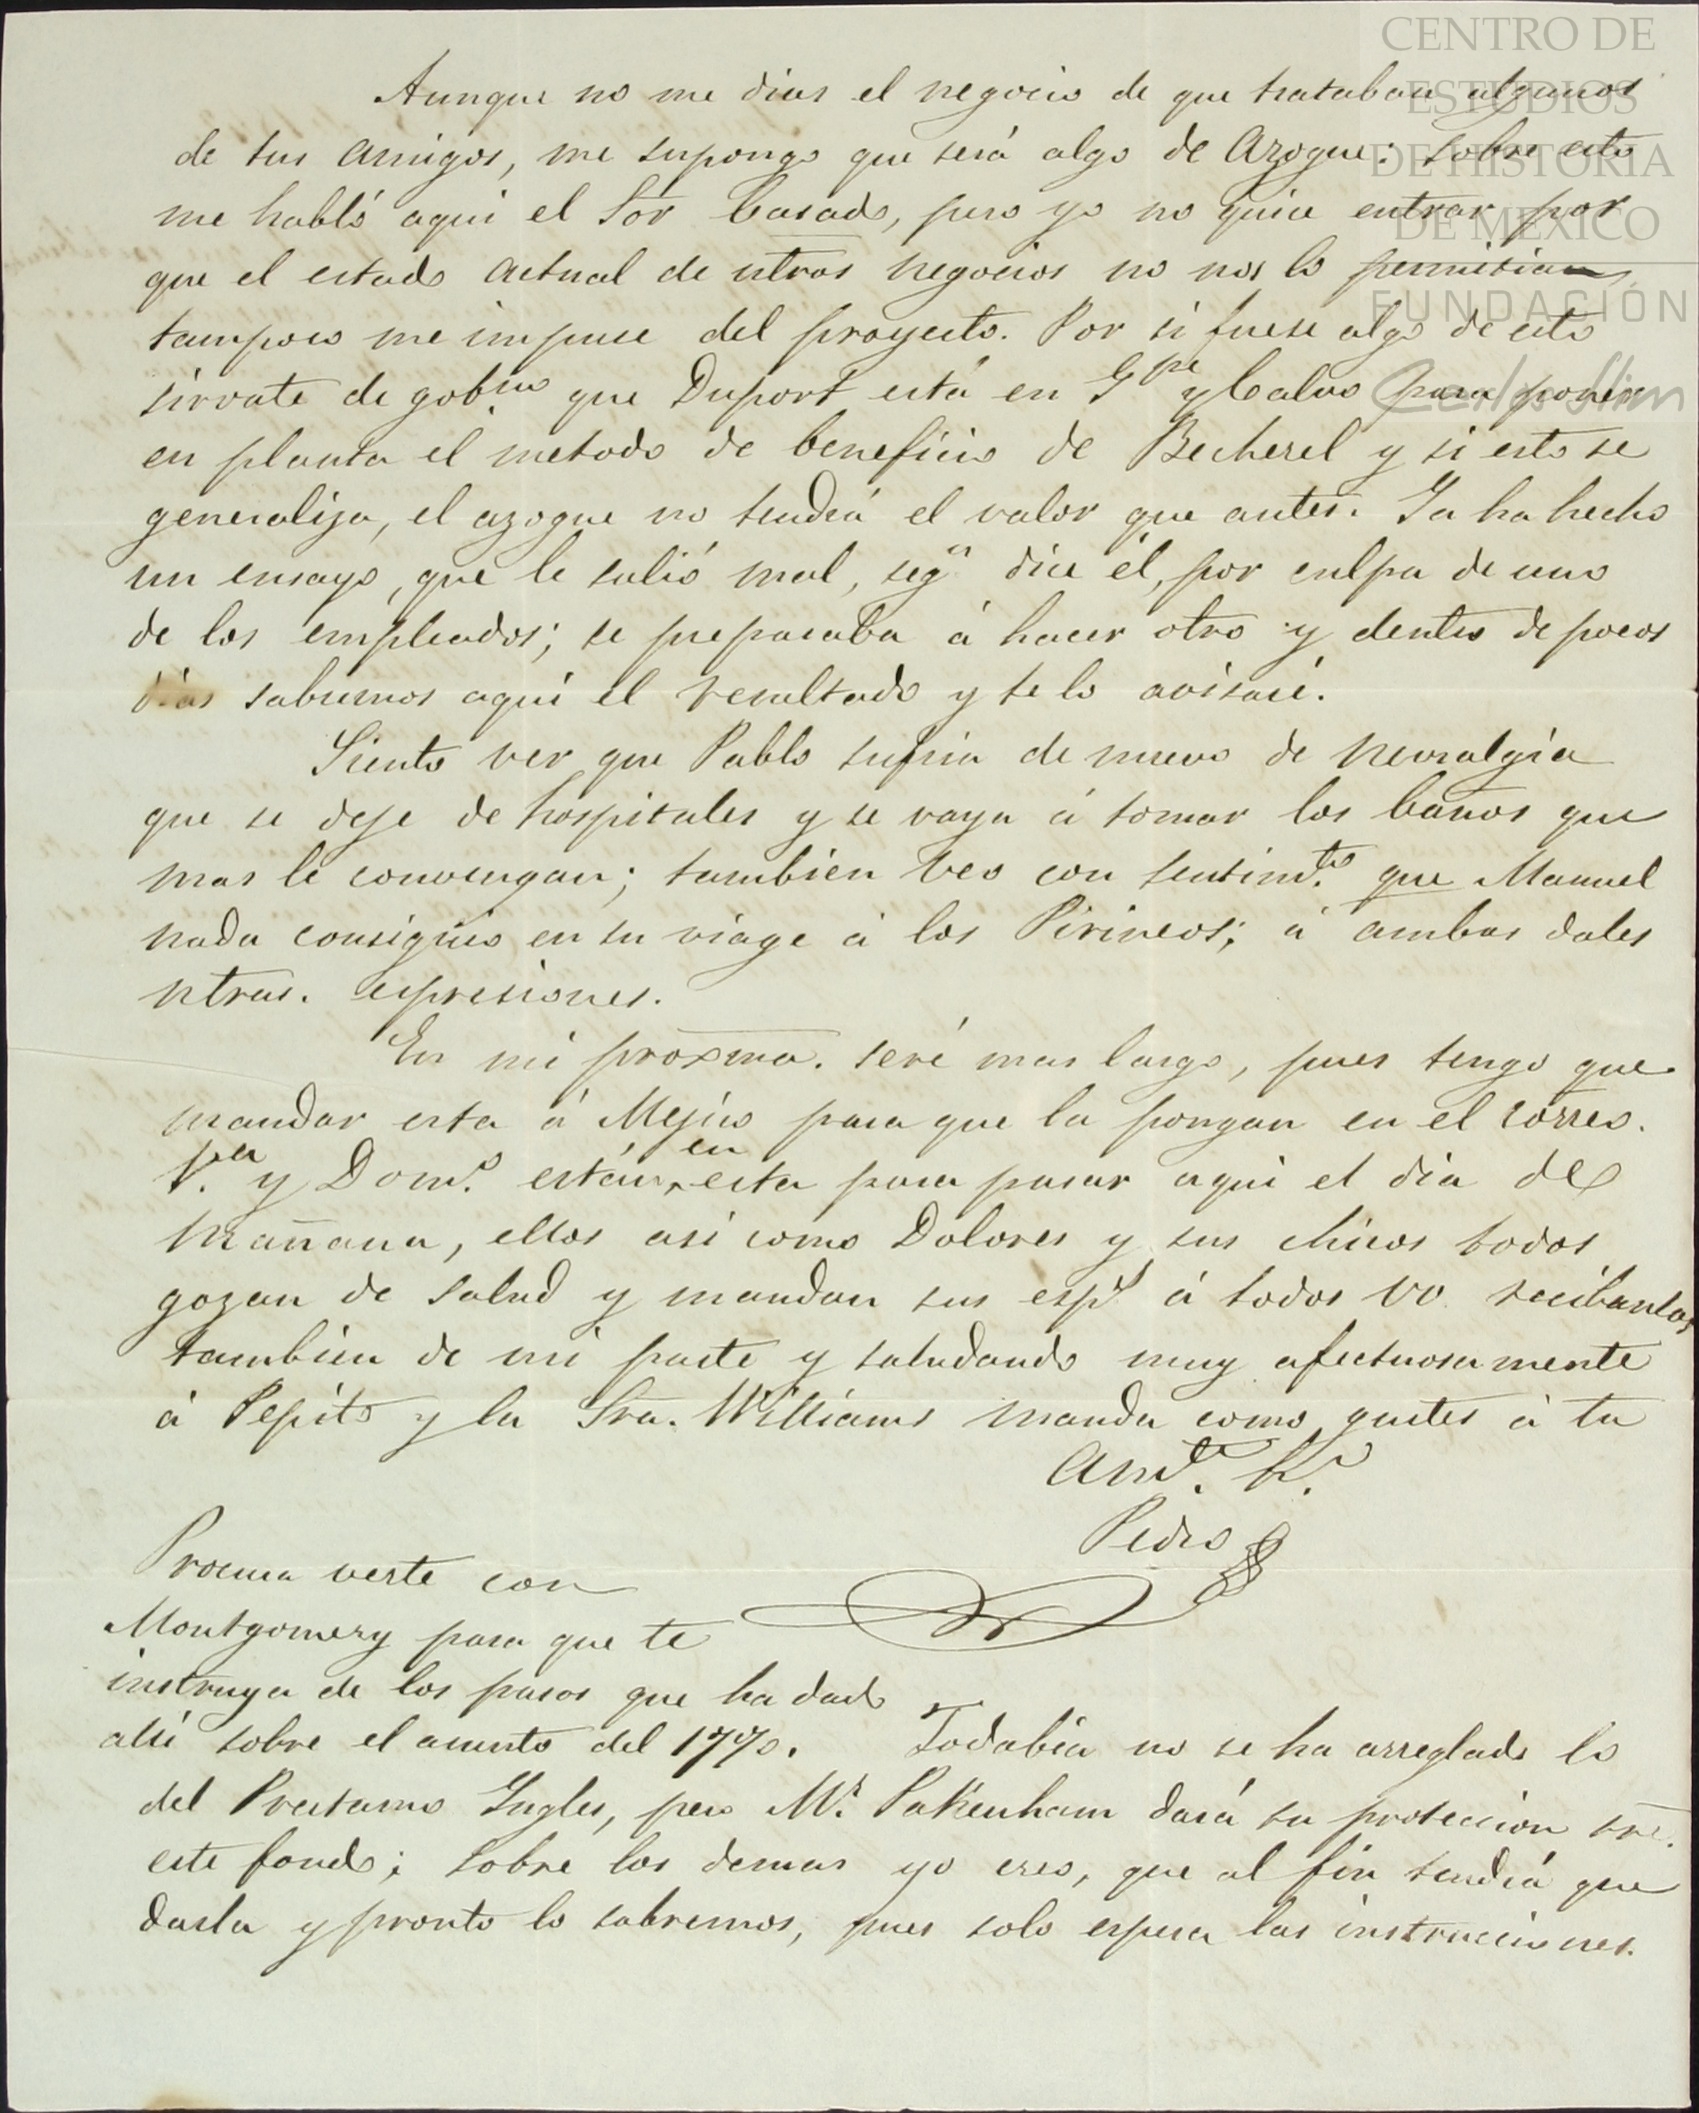 CENTRO DE
ESTUDIOS
DE HISTORIA
DE MEXICO
FUNDACIÓN
Carlos Slim
Aunque no me dices el negocio de que trataban algunos
de tus amigos, me supongo que será algo de Azogue: sobre esto
me habló aqui el Sor Casado, pero yo no quise entrar por
que el estado actual de ntros negocios no nos lo permitia
tampoco me impuse del proyecto. Por si fuese algo de esto
sirvate de gobno que Duport está en Gpe y Calvo para poner
en planta el metodo de beneficio de Becherel y si esto se
generaliza, el azogue no tendrá el valor que antes. Ya ha hecho
un ensayo, que le salió mal, segn dice él, por culpa de uno
de los empleados; se preparaba á hacer otro y dentro de pocos
dias sabremos aqui el resultado y te lo avisaré.
Siento ver que Pablo sufria de nuevo de nevralgia
que se deje de hospitales y se vaya á tomar los baños que
mas le convengan; tambien veo con sentimto. que Manuel
nada consiguio en su viage á los Pirineos; á ambos dales
ntras. espresiones.
En mi proxma. seré mas largo, pues tengo que
mandar esta á Mejico para que la pongan en el correo.
Fca y Domo. están en esta para pasar aqui el dia de
mañana, ellos asi como Dolores y sus chicos todos
gozan de salud y mandan sus esps á todos VV. recibanlas
tambien de mi parte y saludando muy afectuosamente
á Pepito y la Sra. Williams manda como gustes á tu
Amte. Ho.
Pedro
Procura verte con
Montgomery para que te
instruya de los pasos que ha dado
ahi sobre el asunto del 17%.
Todabia no se ha arreglado lo
del Prestamo Ingles, pero Mr. Pakenham dará su proteccion sre.
este fondo; sobre los demas yo creo, que al fin tendrá que
darla y pronto lo sabremos, pues solo espera las instrucciones.